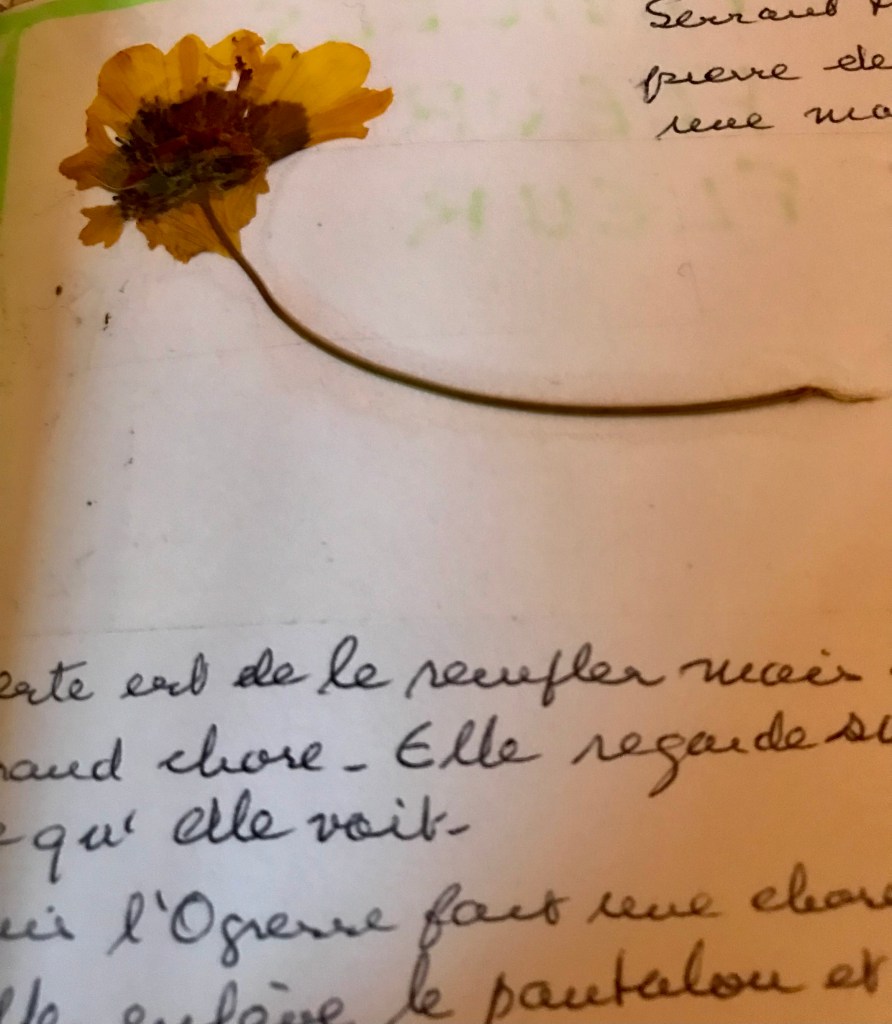 Serraut
pierre de
une mo
FLEUR
erte est de le renifler mais
rand chose - Elle regarde su
e qu' elle voit -
uis l'Ogresse fait une chose
lle enlève le pantalon et